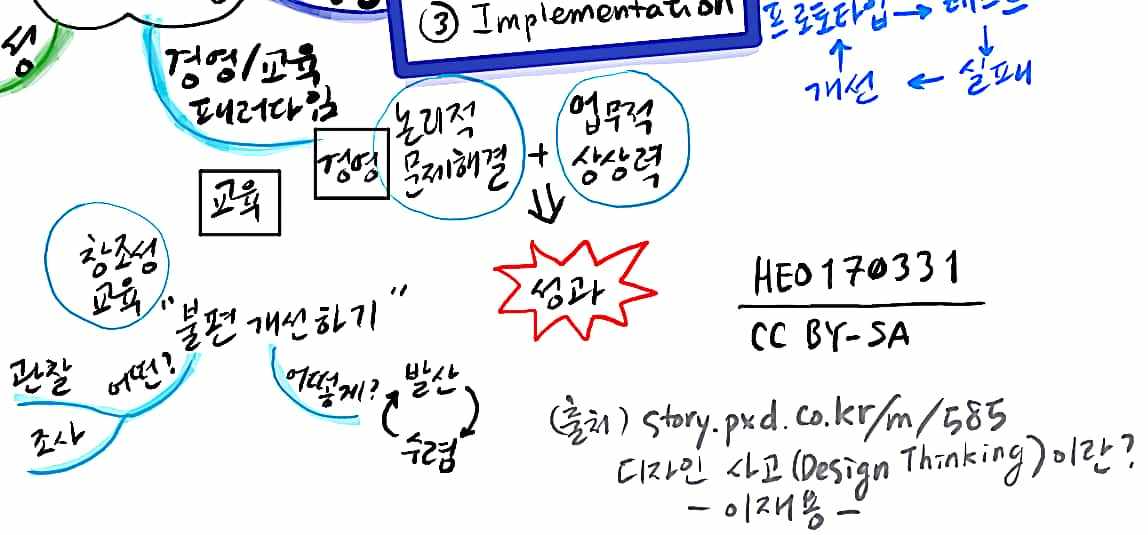 ③ Implementation
프로토타입 → 테스트
↓
실패
←
개선
↑
성
경영/교육
패러다임
경영
논리적
문제해결
+
업무적
상상력
⇓
성과
교육
창조성
교육
"불편 개선하기"
관찰
조사
어떤?
어떻게?
발산
수렴
HEO170331
CC BY-SA
(출처) story.pxd.co.kr/m/585
디자인 사고(Design Thinking)이란?
- 이재용 -